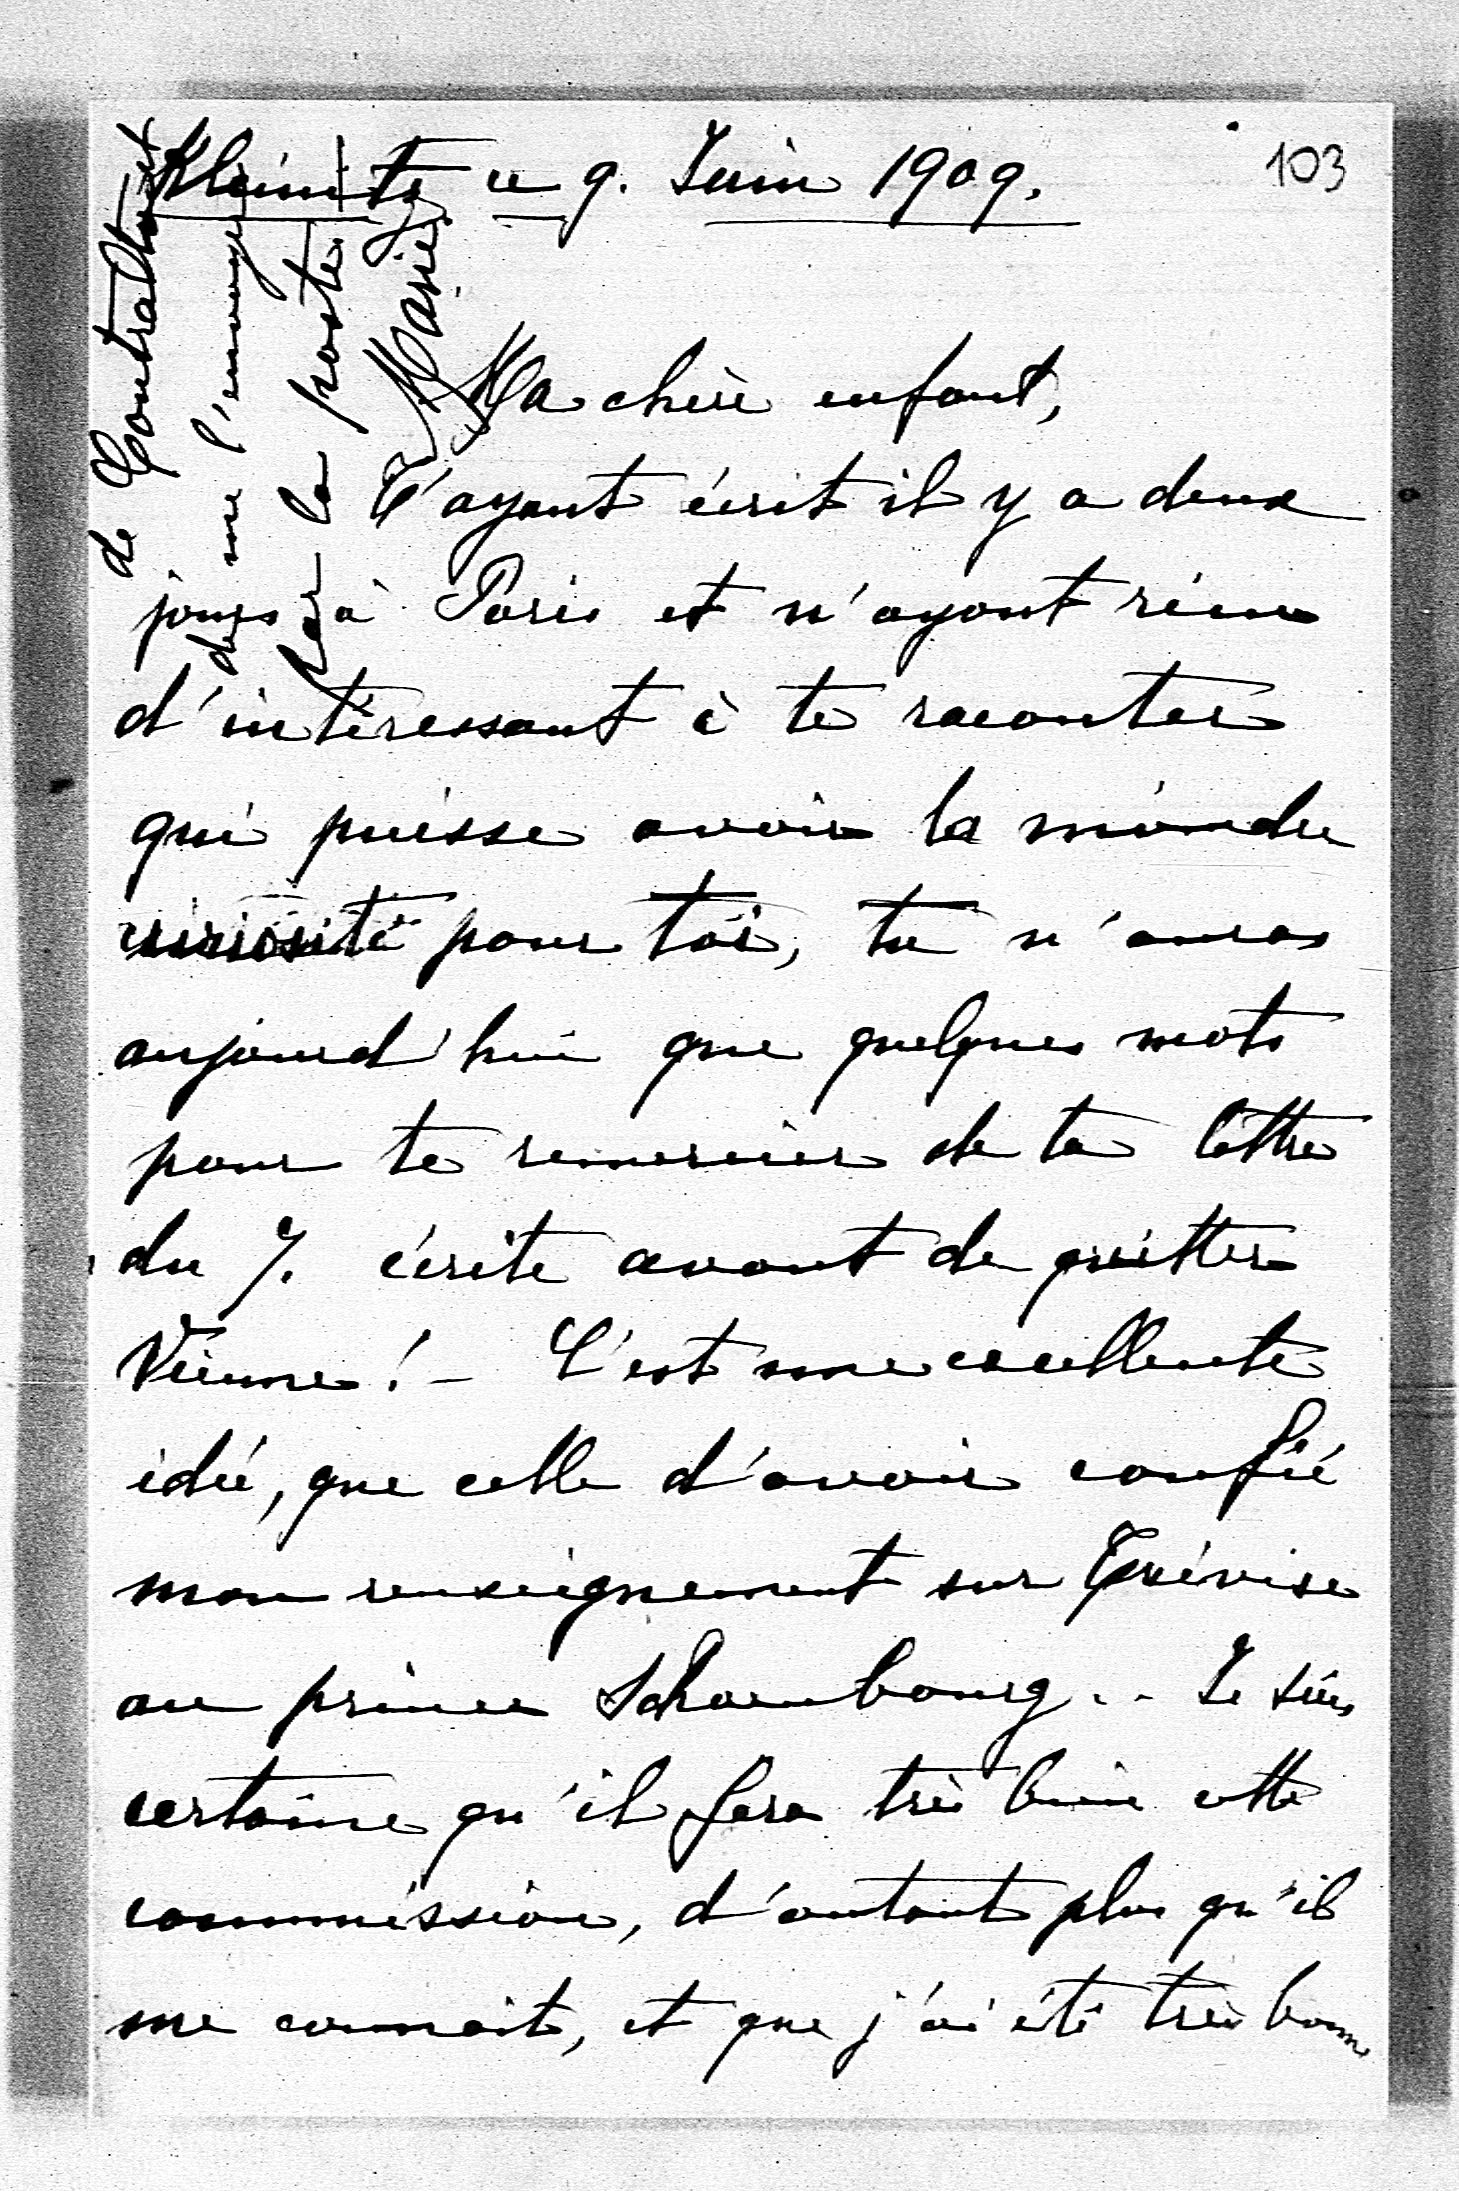 103
Kleinitz ce 9. Juin 1909.
Ma chère enfant,
T'ayant écrit il y a deux
jours à Paris et n'ayant rien
d'intéressant à te raconter
qui puisse avoir la moindre
curiosité pour toi, tu n'auras
aujourd'hui que quelques mots
pour te remercier de ta lettre
du 7. écrite avant de quitter
Vienne! - C'est une excellente
idée, que celle d'avoir confié
mon renseignement sur Trévise
au prince Schoenbourg .. Je suis
certaine qu'il fera très bien cette
commission, d'autant plus qu'il
me connait, et que j'ai été très bonne
de
de me l'envoyer
par la poste
Marie